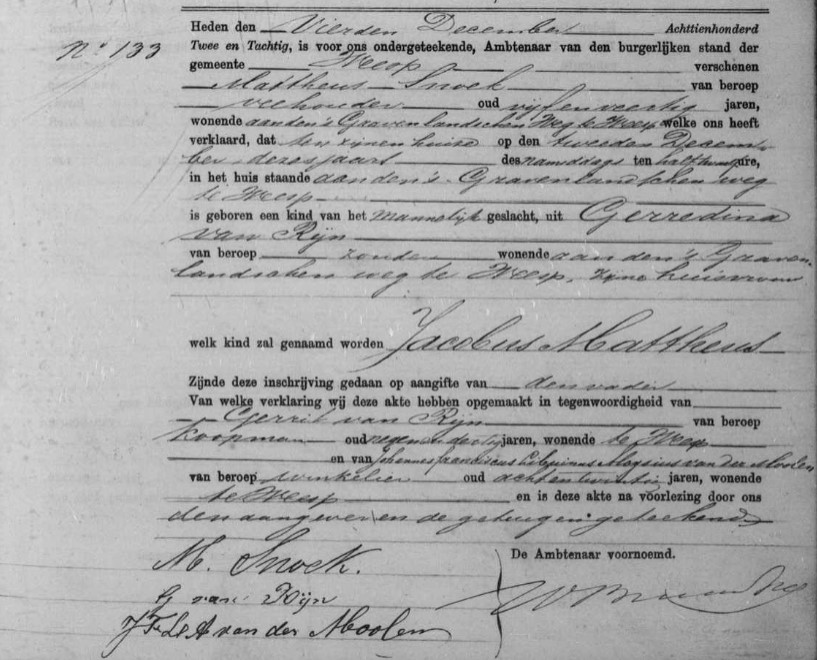 Heden den Vierden December Achttienhonderd
No 133
Twee en Tachtig, is voor ons ondergeteekende, Ambtenaar van den burgerlijken stand der
gemeente Weesp verschenen
Mattheus Snoek van beroep
veehouder oud vijf en veertig jaren,
wonende aan den 's Gravenlandschen Weg te Weesp welke ons heeft
verklaard, dat ten zijnen huize op den tweeden Decem-
ber dezes jaars des namiddags ten half twaalf ure,
in het huis staande aan den 's Gravenlandschen weg
te Weesp
is geboren een kind van het Mannelijk geslacht, uit Gerredina
van Rijn
van beroep zonder wonende aan den 's Graven-
landschen weg te Weesp, zijne huisvrouw
welk kind zal genaamd worden Jacobus Mattheus
Zijnde deze inschrijving gedaan op aangifte van den vader
Van welke verklaring wij deze akte hebben opgemaakt in tegenwoordigheid van
Gerrit van Rijn van beroep
koopman oud negen en dertig jaren, wonende te Weesp
en van Johannes Franciscus Aloysius van der Moolen
van beroep winkelier oud acht en twintig jaren, wonende
te Weesp en is deze akte na voorlezing door ons
den aangever en de getuigen geteekend
De Ambtenaar voornoemd.
M. Snoek.
G van Rijn
J F L A van der Moolen